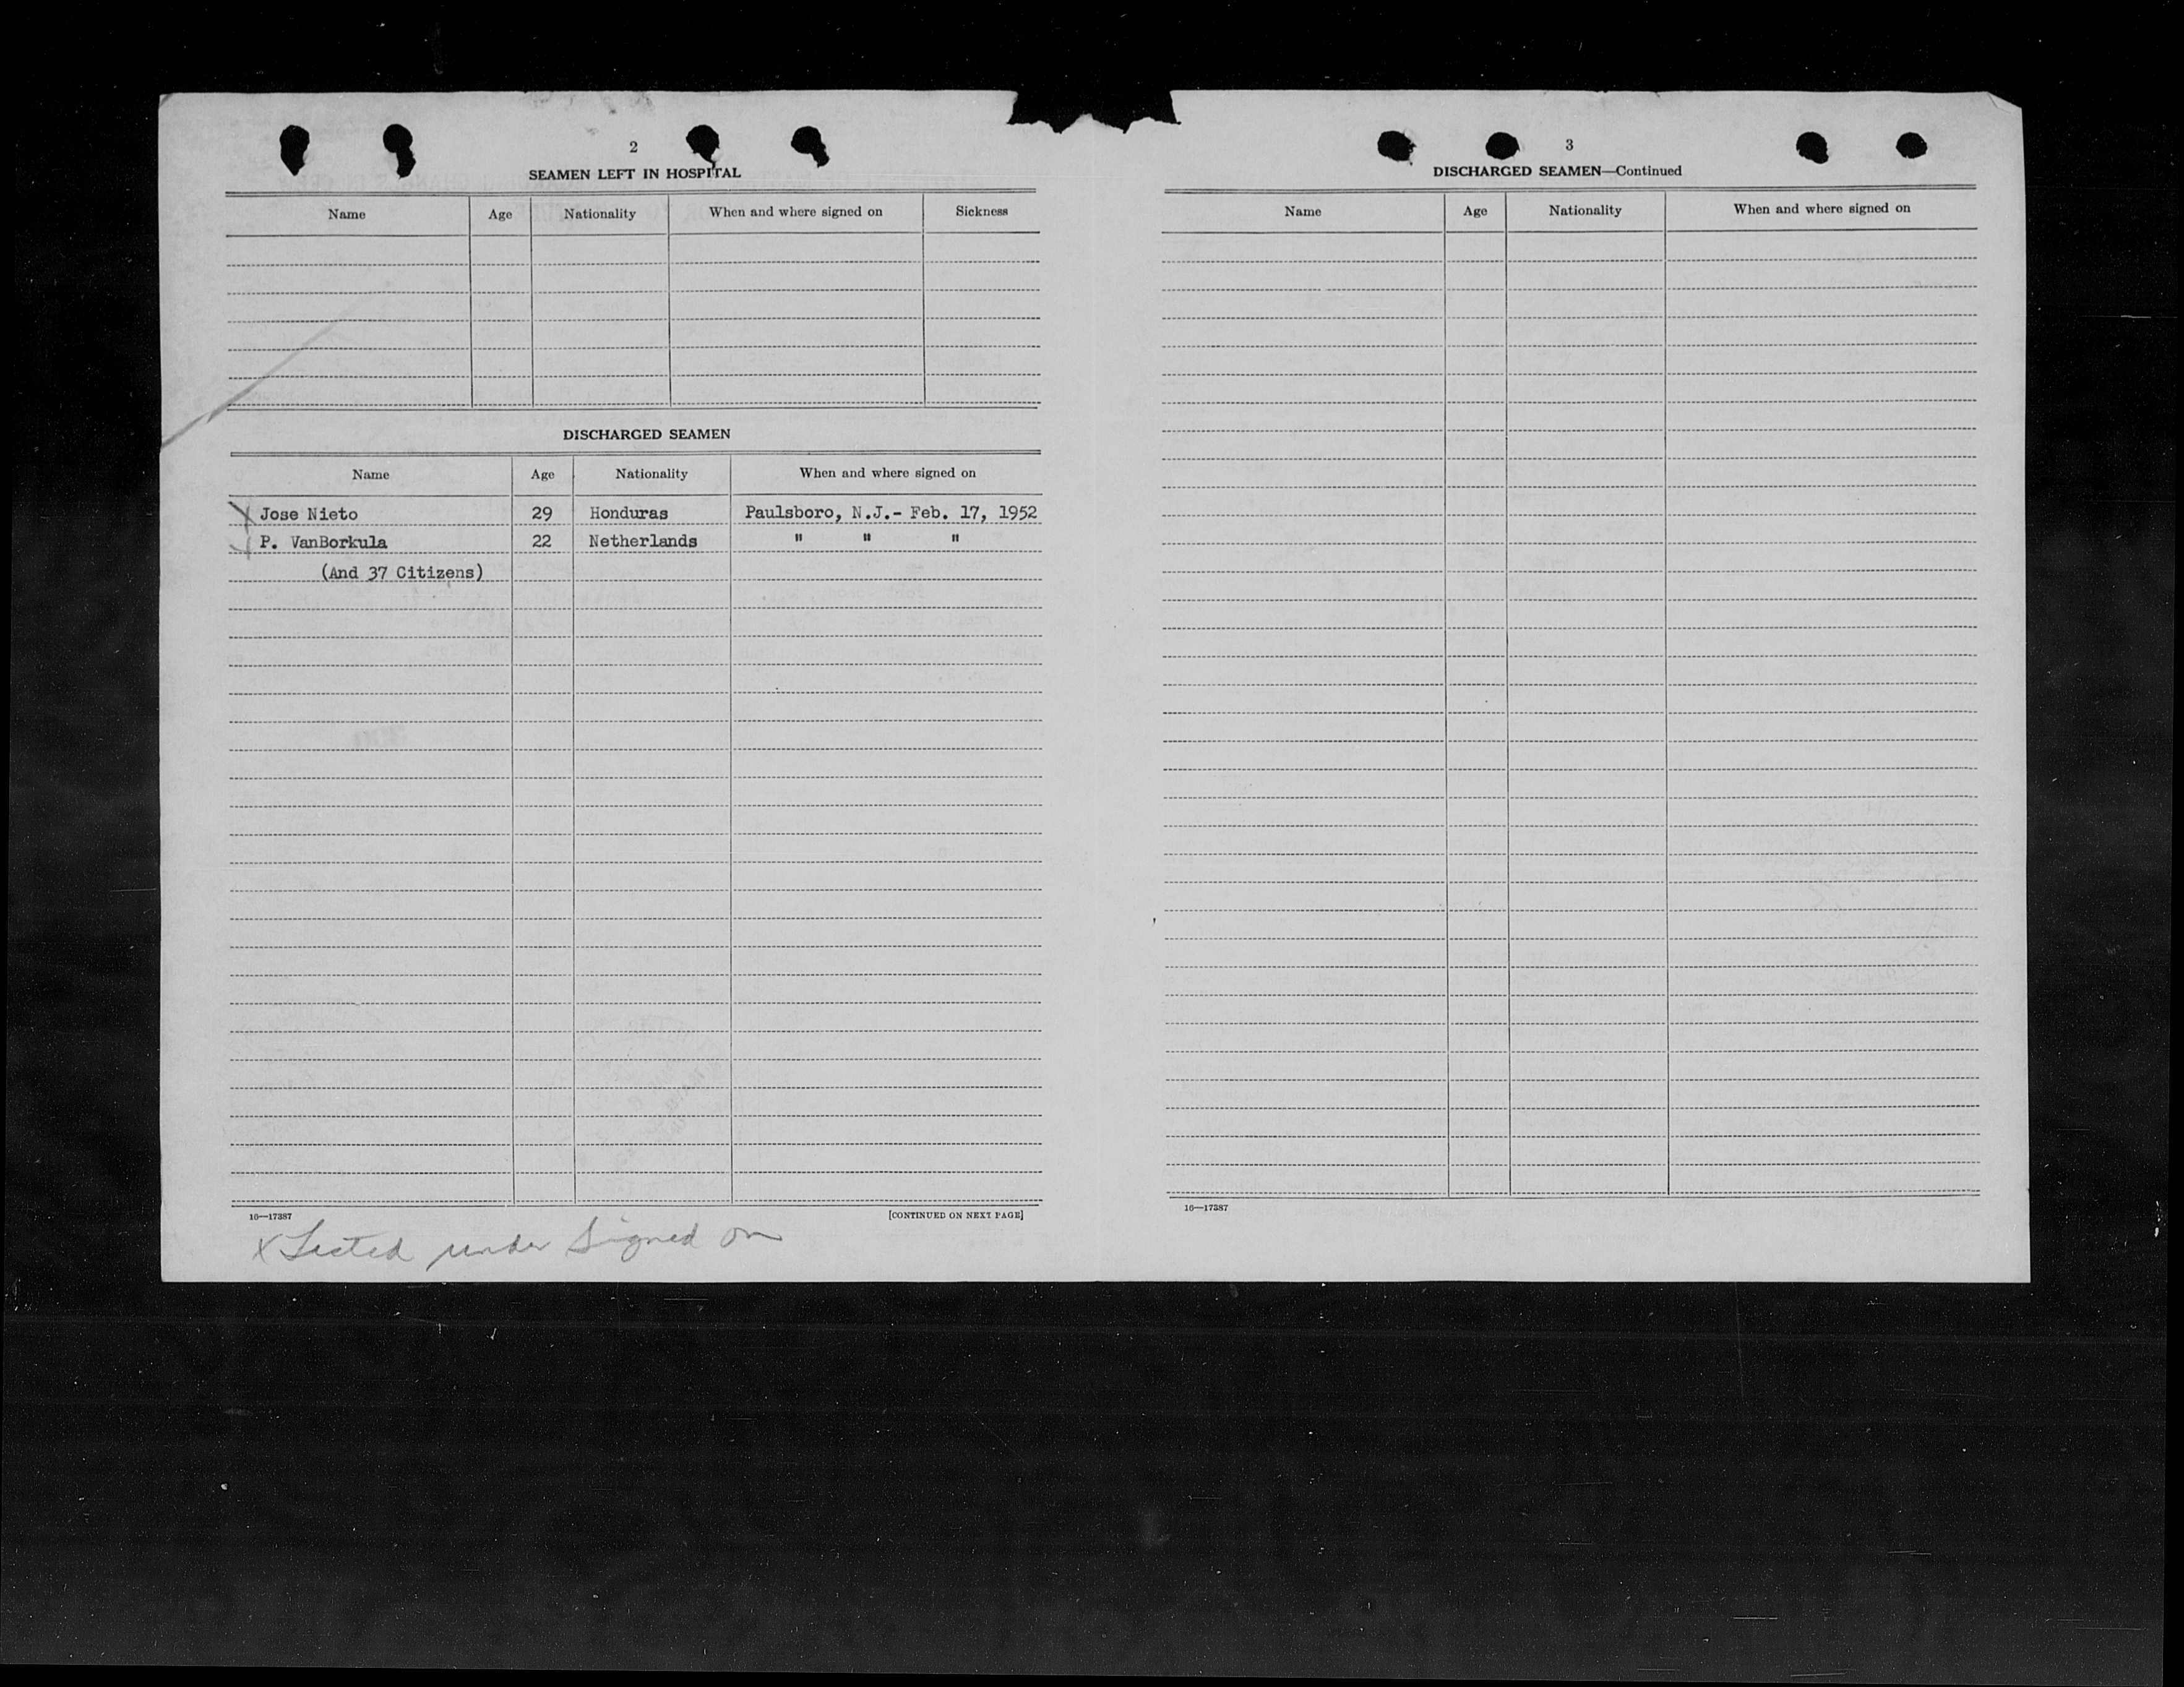 2
SEAMEN LEFT IN HOSPITAL
Name Age Nationality When and where signed on Sickness
DISCHARGED SEAMEN
Name Age Nationality When and where signed on
X Jose Nieto 29 Honduras Paulsboro, N.J.- Feb. 17, 1952
P. VanBorkula 22 Netherlands " " "
(And 37 Citizens)
16—17387
[CONTINUED ON NEXT PAGE]
x Listed under Signed on
3
DISCHARGED SEAMEN—Continued
Name Age Nationality When and where signed on
16—17387